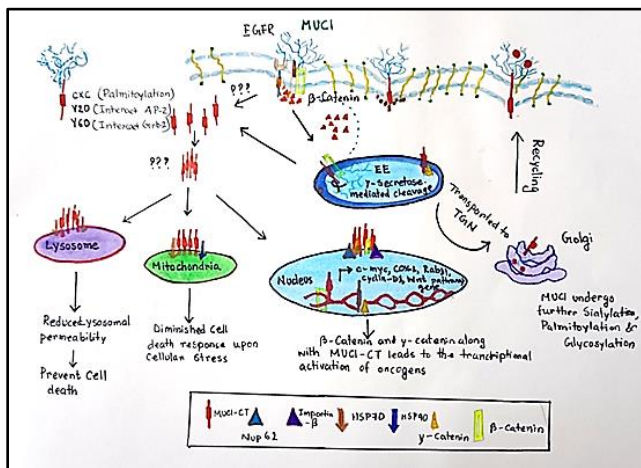 EGFR
MUCI
CXC (Palmitoylation)
Y20 (Interact AP-2)
Y60 (Interact Grb2)
???
β-Catenin
???
EE
γ-secretase-
mediated cleavage
Recycling
Transported to
TGN
Golgi
MUCI undergo
further Sialylation,
Palmitoylation &
Glycosylation
Lysosome
Mitochondria
Nucleus
c-myc, COX-2, Rab31,
cyclin-D1, Wnt pathway
gene
Reduced Lysosomal
permeability
Prevent Cell
death
Diminished Cell
death response upon
Cellular Stress
β-Catenin and γ-catenin along
with MUCI-CT leads to the trancriptional
activation of oncogens
MUCI-CT
Nup 62
Importin
-β
HSP70
HSP90
γ-catenin
β-Catenin